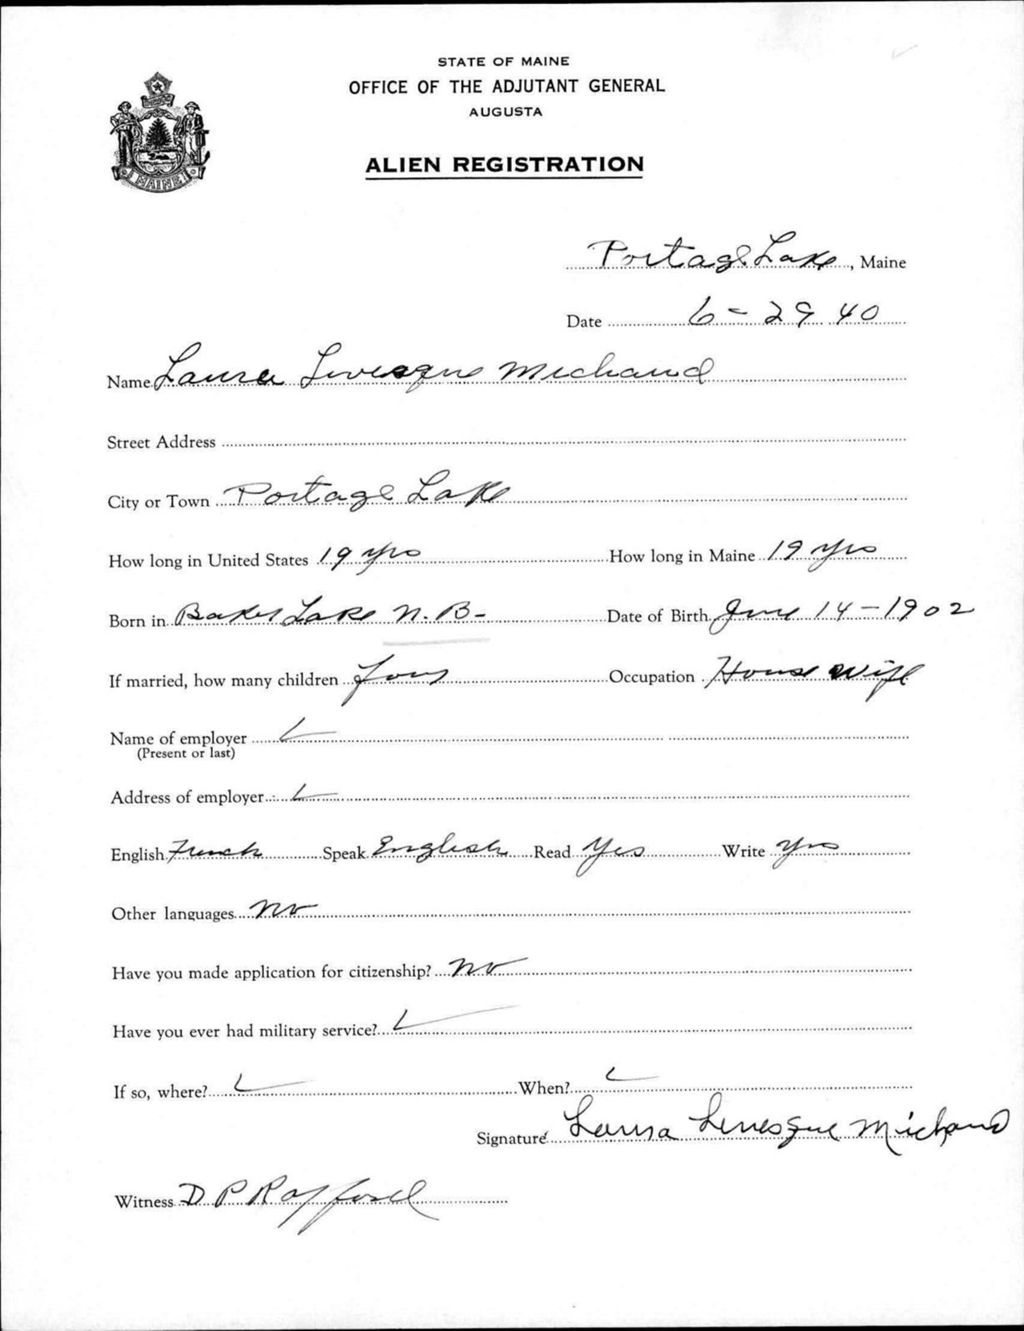 STATE OF MAINE
OFFICE OF THE ADJUTANT GENERAL
AUGUSTA
ALIEN REGISTRATION
MAINE
Portage Lake, Maine
Date 6-29 40
Name Laura Levesque Michaud
Street Address
City or Town Portage Lake
How long in United States 19 yrs How long in Maine 19 yrs
Born in Baker Lake N.B- Date of Birth June 14-1902
If married, how many children four Occupation House wife
Name of employer
(Present or last)
Address of employer
English French Speak English Read Yes Write Yes
Other languages No
Have you made application for citizenship? No
Have you ever had military service?
If so, where? When?
Signature Laura Levesque Michaud
Witness D P Rafford